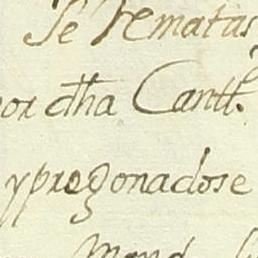 Se Rematas
por dha Cantt.
ypregonadose
Mand